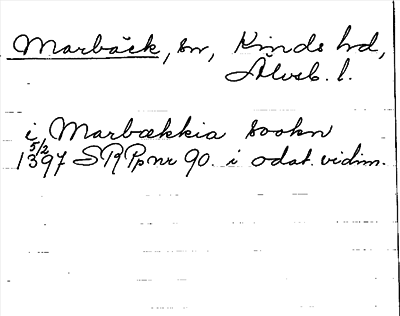 Marbäck, sn, Kinds hd,
Älvsb. l.
i Marbækkia sookn
5/2
1397 SRPp nr 90. i odat. vidim.